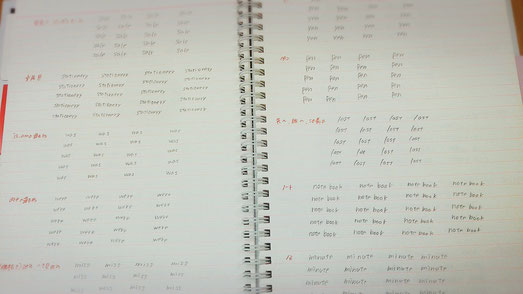 sale sale sale sale
sale sale sale sale
sale sale sale sale
sale sale sale sale
文房具 stationery stationery stationery stationery
stationery stationery stationery stationery
stationery stationery stationery stationery
stationery stationery stationery stationery
stationery stationery stationery stationery
was was was was
was was was was
was was was was
was was was was
was was was was
were were were were
were were were were
were were were were
were were were were
were were were were
miss miss miss miss
miss miss miss miss
miss miss miss miss
pen pen pen pen
pen pen pen pen
pen pen pen pen
pen pen pen pen
ペン pen pen pen pen
pen pen pen pen
pen pen pen pen
pen pen pen pen
pen pen pen pen
last last last last
last last last last
last last last last
last last last last
last last last last
last last last last
ノート note book note book note book note book
note book note book note book note book
note book note book note book note book
note book note book note book note book
note book note book note book note book
分 minute minute minute minute
minute minute minute minute
minute minute minute minute